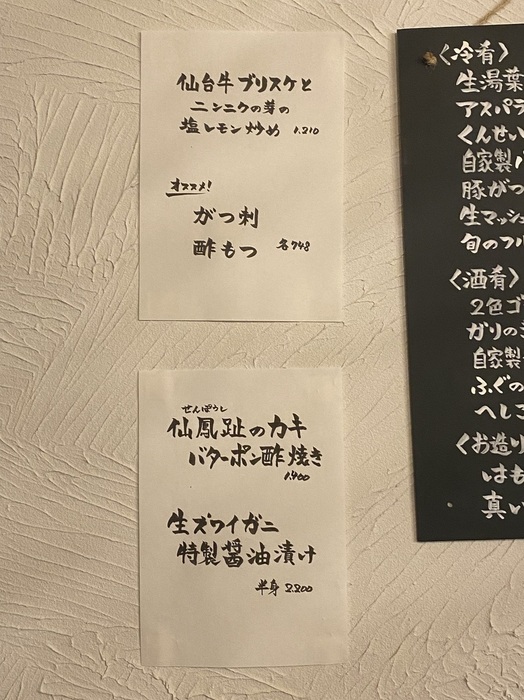 仙台牛ブリスケと
ニンニクの芽の
塩レモン炒め 1.210
オススメ!
がつ刺
酢もつ 各748
せんぽうし
仙鳳趾のカキ
バターポン酢焼き
1.400
生ズワイガニ
特製醤油漬け
半身 2.200
〈冷肴〉
生湯葉
アスパラ
くんせい
自家製
豚がつ
生マッシュ
旬のフル
〈酒肴〉
2色ゴ
ガリの
自家製
ふぐの
へしこ
〈お造り
はも
真い